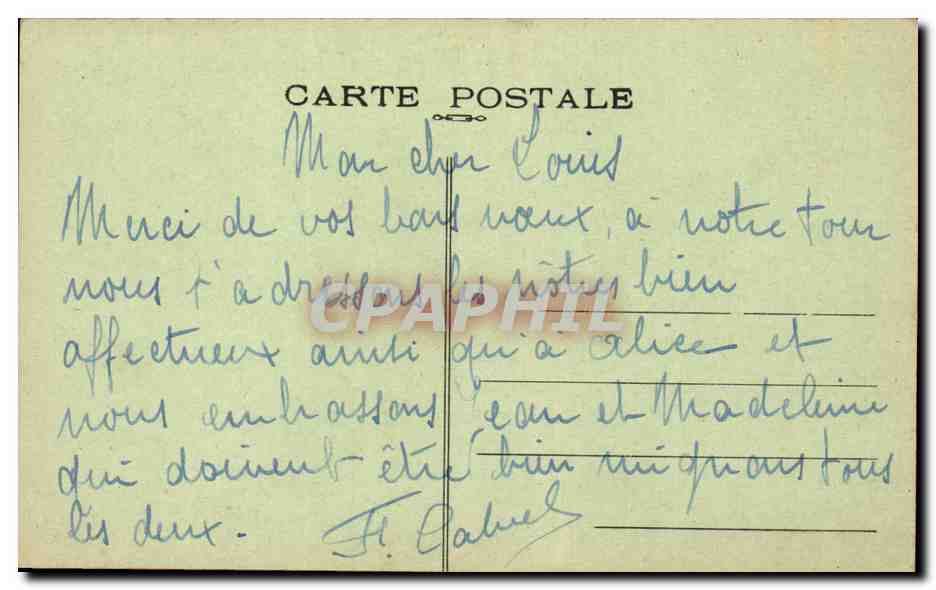 CARTE POSTALE
Mon cher Louis
Merci de vos bons vœux, à notre tour
nous t'adressons les nôtres bien
CPAPHIL
affectueux ainsi qu'à Alice et
nous embrassons Jean et Madeleine
qui doivent être bien mignons tous
les deux.